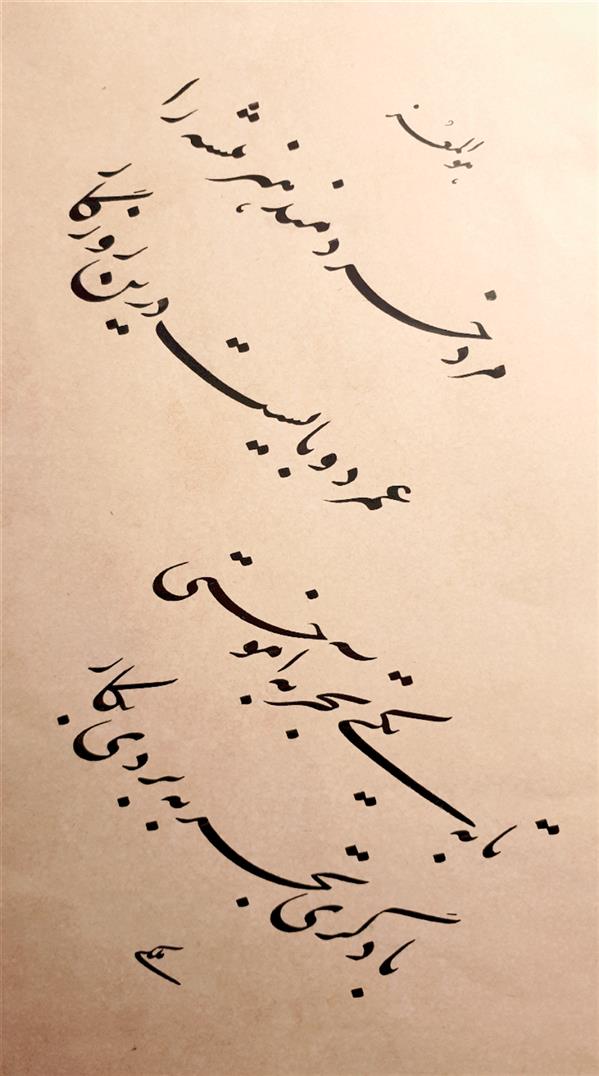 هو المعز
مرد خردمند هنر پیشه را
عمر دو بایست درین روزگار
تا به یکی تجربه آموختی
با دگری تجربه بردی بکار